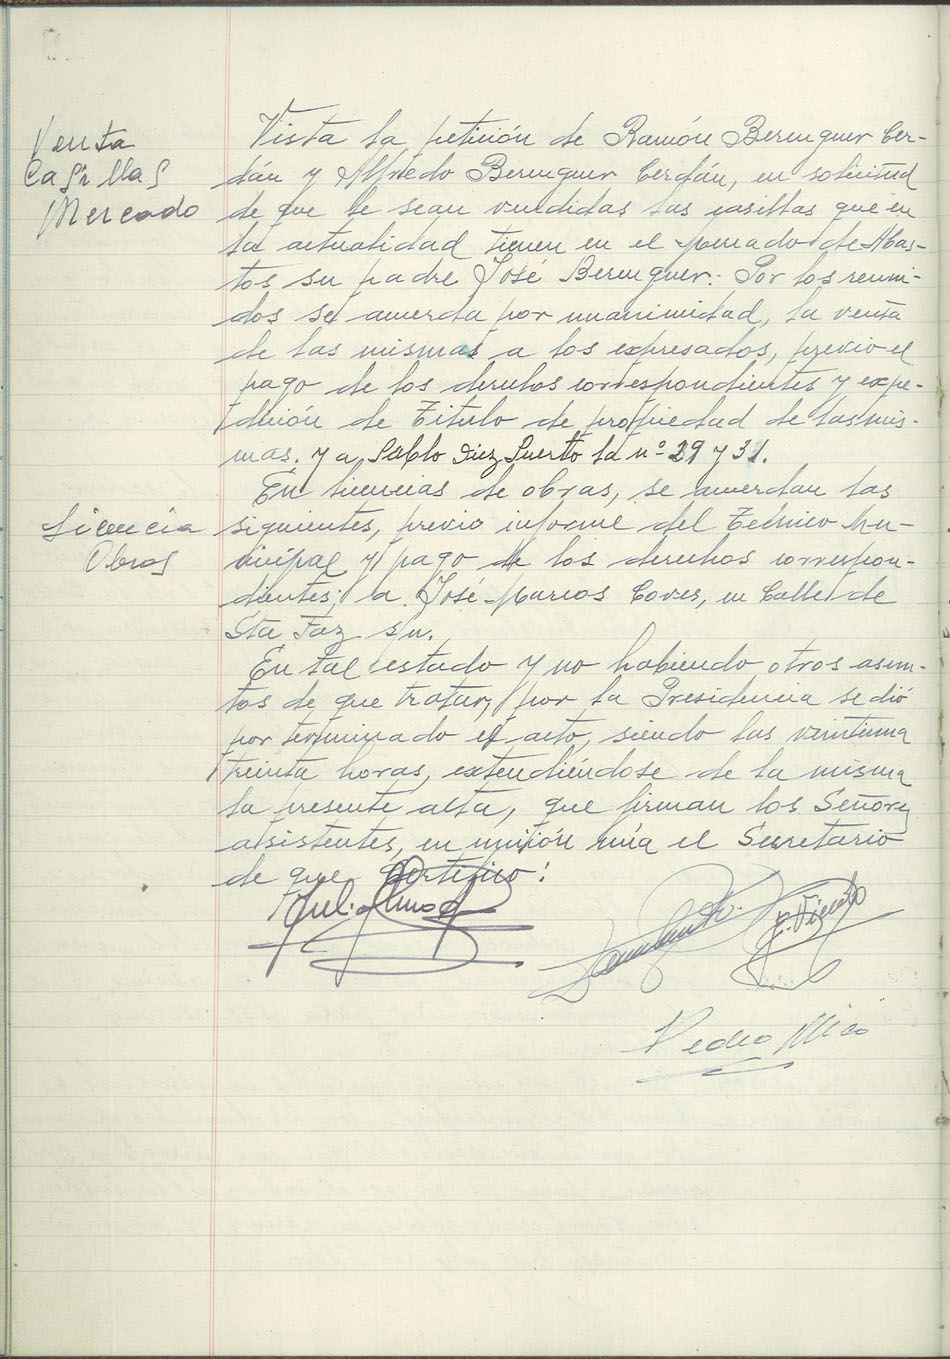 Venta
Casillas
Mercado
Vista la petición de Ramón Berenguer Cer-
dán y Alfredo Berenguer Cerdán, en solicitud
de que le sean vendidas las casillas que en
la actualidad tienen en el Mercado de Abas-
tos su padre José Berenguer. Por los reuni-
dos se acuerda por unanimidad, la venta
de las mismas a los expresados, previo el
pago de los derechos correspondientes y expe-
dición de Título de propiedad de las mis-
mas. y a Pablo Diez Puerto la nº 29 y 31.
Licencia
Obras
En licencias de obras, se acuerdan las
siguientes, previo informe del Técnico Mu-
nicipal y pago de los derechos correspon-
dientes; a José Marcos Coves, en Calle de
Sta Faz s/n.
En tal estado y no habiendo otros asun-
tos de que tratar, por la Presidencia se dió
por terminado el acto, siendo las veintiuna
treinta horas, extendiéndose de la misma
la presente acta, que firman los Señores
asistentes, en unión mía el Secretario
de que certifico:
Pedro Micó